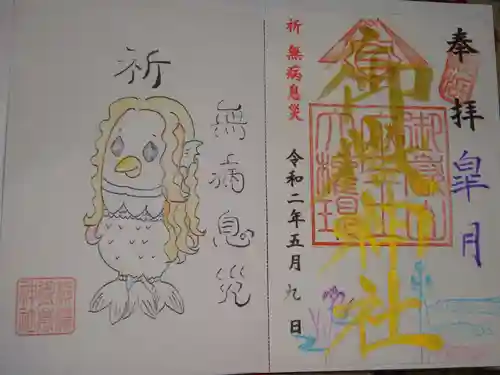 奉拝
皐月
御嶽神社
御嶽山
大権現
祈 無病息災
令和二年五月九日
祈
無病息災